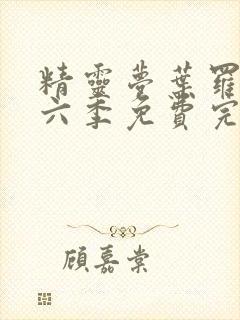 精靈夢葉羅
六季免費完
顧嘉棠